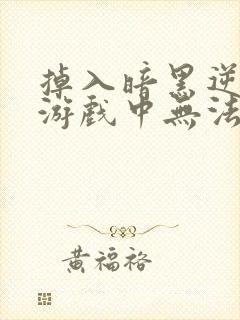 掉入暗黑逆
游戲中無法
黃福裕